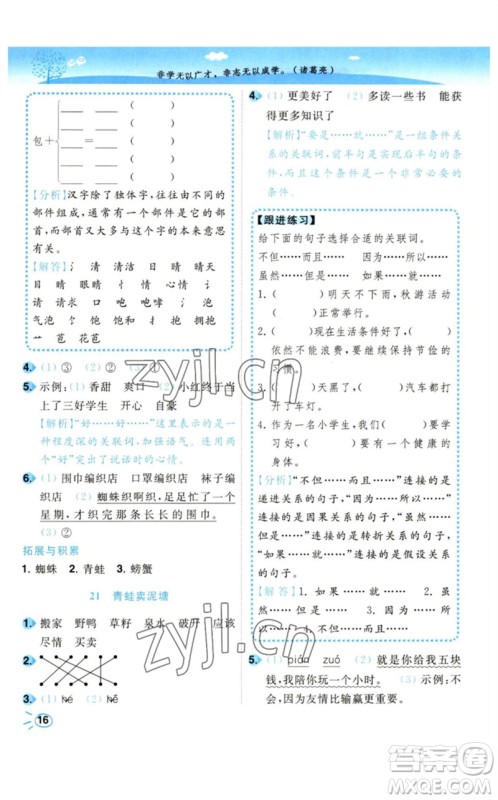 非学无以广才，非志无以成学。（诸葛亮）
（ ） （ ）
（ ） （ ）
包＋ ＝ （ ） （ ）
（ ） （ ）
（ ） （ ）
[分析] 汉字除了独体字，往往由不同的
部件组成，通常有一个部件作为部首，
而部首又大多与这个字的本来意思
有关。
[解答] 氵 清 清洁 日 晴 晴天
目 睛 眼睛 忄 情 心情 讠
请 请求 口 咆 咆哮 气
气泡 饣 饱 饱和 扌 抱 拥抱
艹 苞 花苞
4. (1) ③ (2) ② (3) ①
5. 示例：(1) 香甜 爽口 (2) 小红终于当
上了三好学生 开心 自豪
[解析] “好……好……”是表示程度较
深的关联词，加强语气。通过关联词，两
个“好”突出了说话时的心情。
6. (1) 围巾编织店 口罩编织店 袜子编
织店 (2) 蜘蛛织啊织，足足忙了一个
星期，才织完那条长长的围巾。
(3) ②
拓展与积累
1. 蜘蛛 2. 青蛙 3. 螃蟹
21 青蛙卖泥塘
1. 搬家 野鸭 草籽 泉水 破旧 应该
尽情 买卖
2.
3. (1) hé (2) hē
16
4. (1) 更美好了 (2) 多读一些书 能获
得更多的知识
[解析] “要是……就……”是一组条件关
系的关联词，前半句是条件，后半句是在
这个条件下的结果，这个条件是一个非
常必要的条件。
【跟进练习】
给下面的句子选择合适的关联词。
不但……而且…… 如果……就……
虽然……但是…… 如果……就……
1. （ ）明天不下雨，秋游活动
（ ）正常举行。
2. （ ）现在生活条件好了，（ ）
依然不能浪费，要继续保持节约
的习惯。
3. （ ）天黑了，（ ）汽车都打
开了车灯。
4. 作为一名小学生，我们（ ）要学
习好，（ ）要有一个健康的
身体。
[分析] “不但……而且……”连接的是
递进关系的句子，“因为……所以……”
连接的是因果关系的句子，“虽然……
但是……”连接的是转折关系的句子，
“如果……就……”连接的是条件关系
的句子。
[解答] 1. 如果 就 2. 虽然 但是
3. 因为 所以 4. 不但 而且
5. (1) pián zuó (2) 就在你给我五块
钱，我陪你玩一个小时。 (3) 示例：不
会，因为友情比输赢更重要。
zyjl.cn
zyjl.cn
作业精灵
答案圈
MXQE.COM